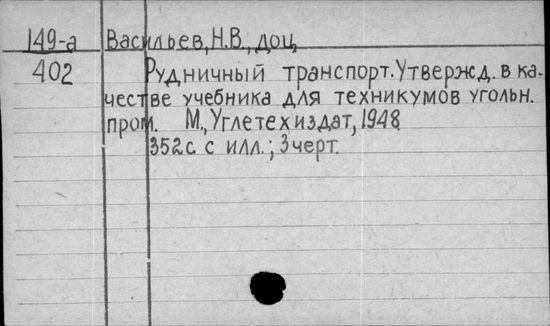 149-а Васильев, Н.В., доц.
402 Рудничный транспорт. Утвержд. в ка-
честве учебника для техникумов угольн.
пром. М., Углетехиздат, 1948
352с. с илл.; 3 черт.